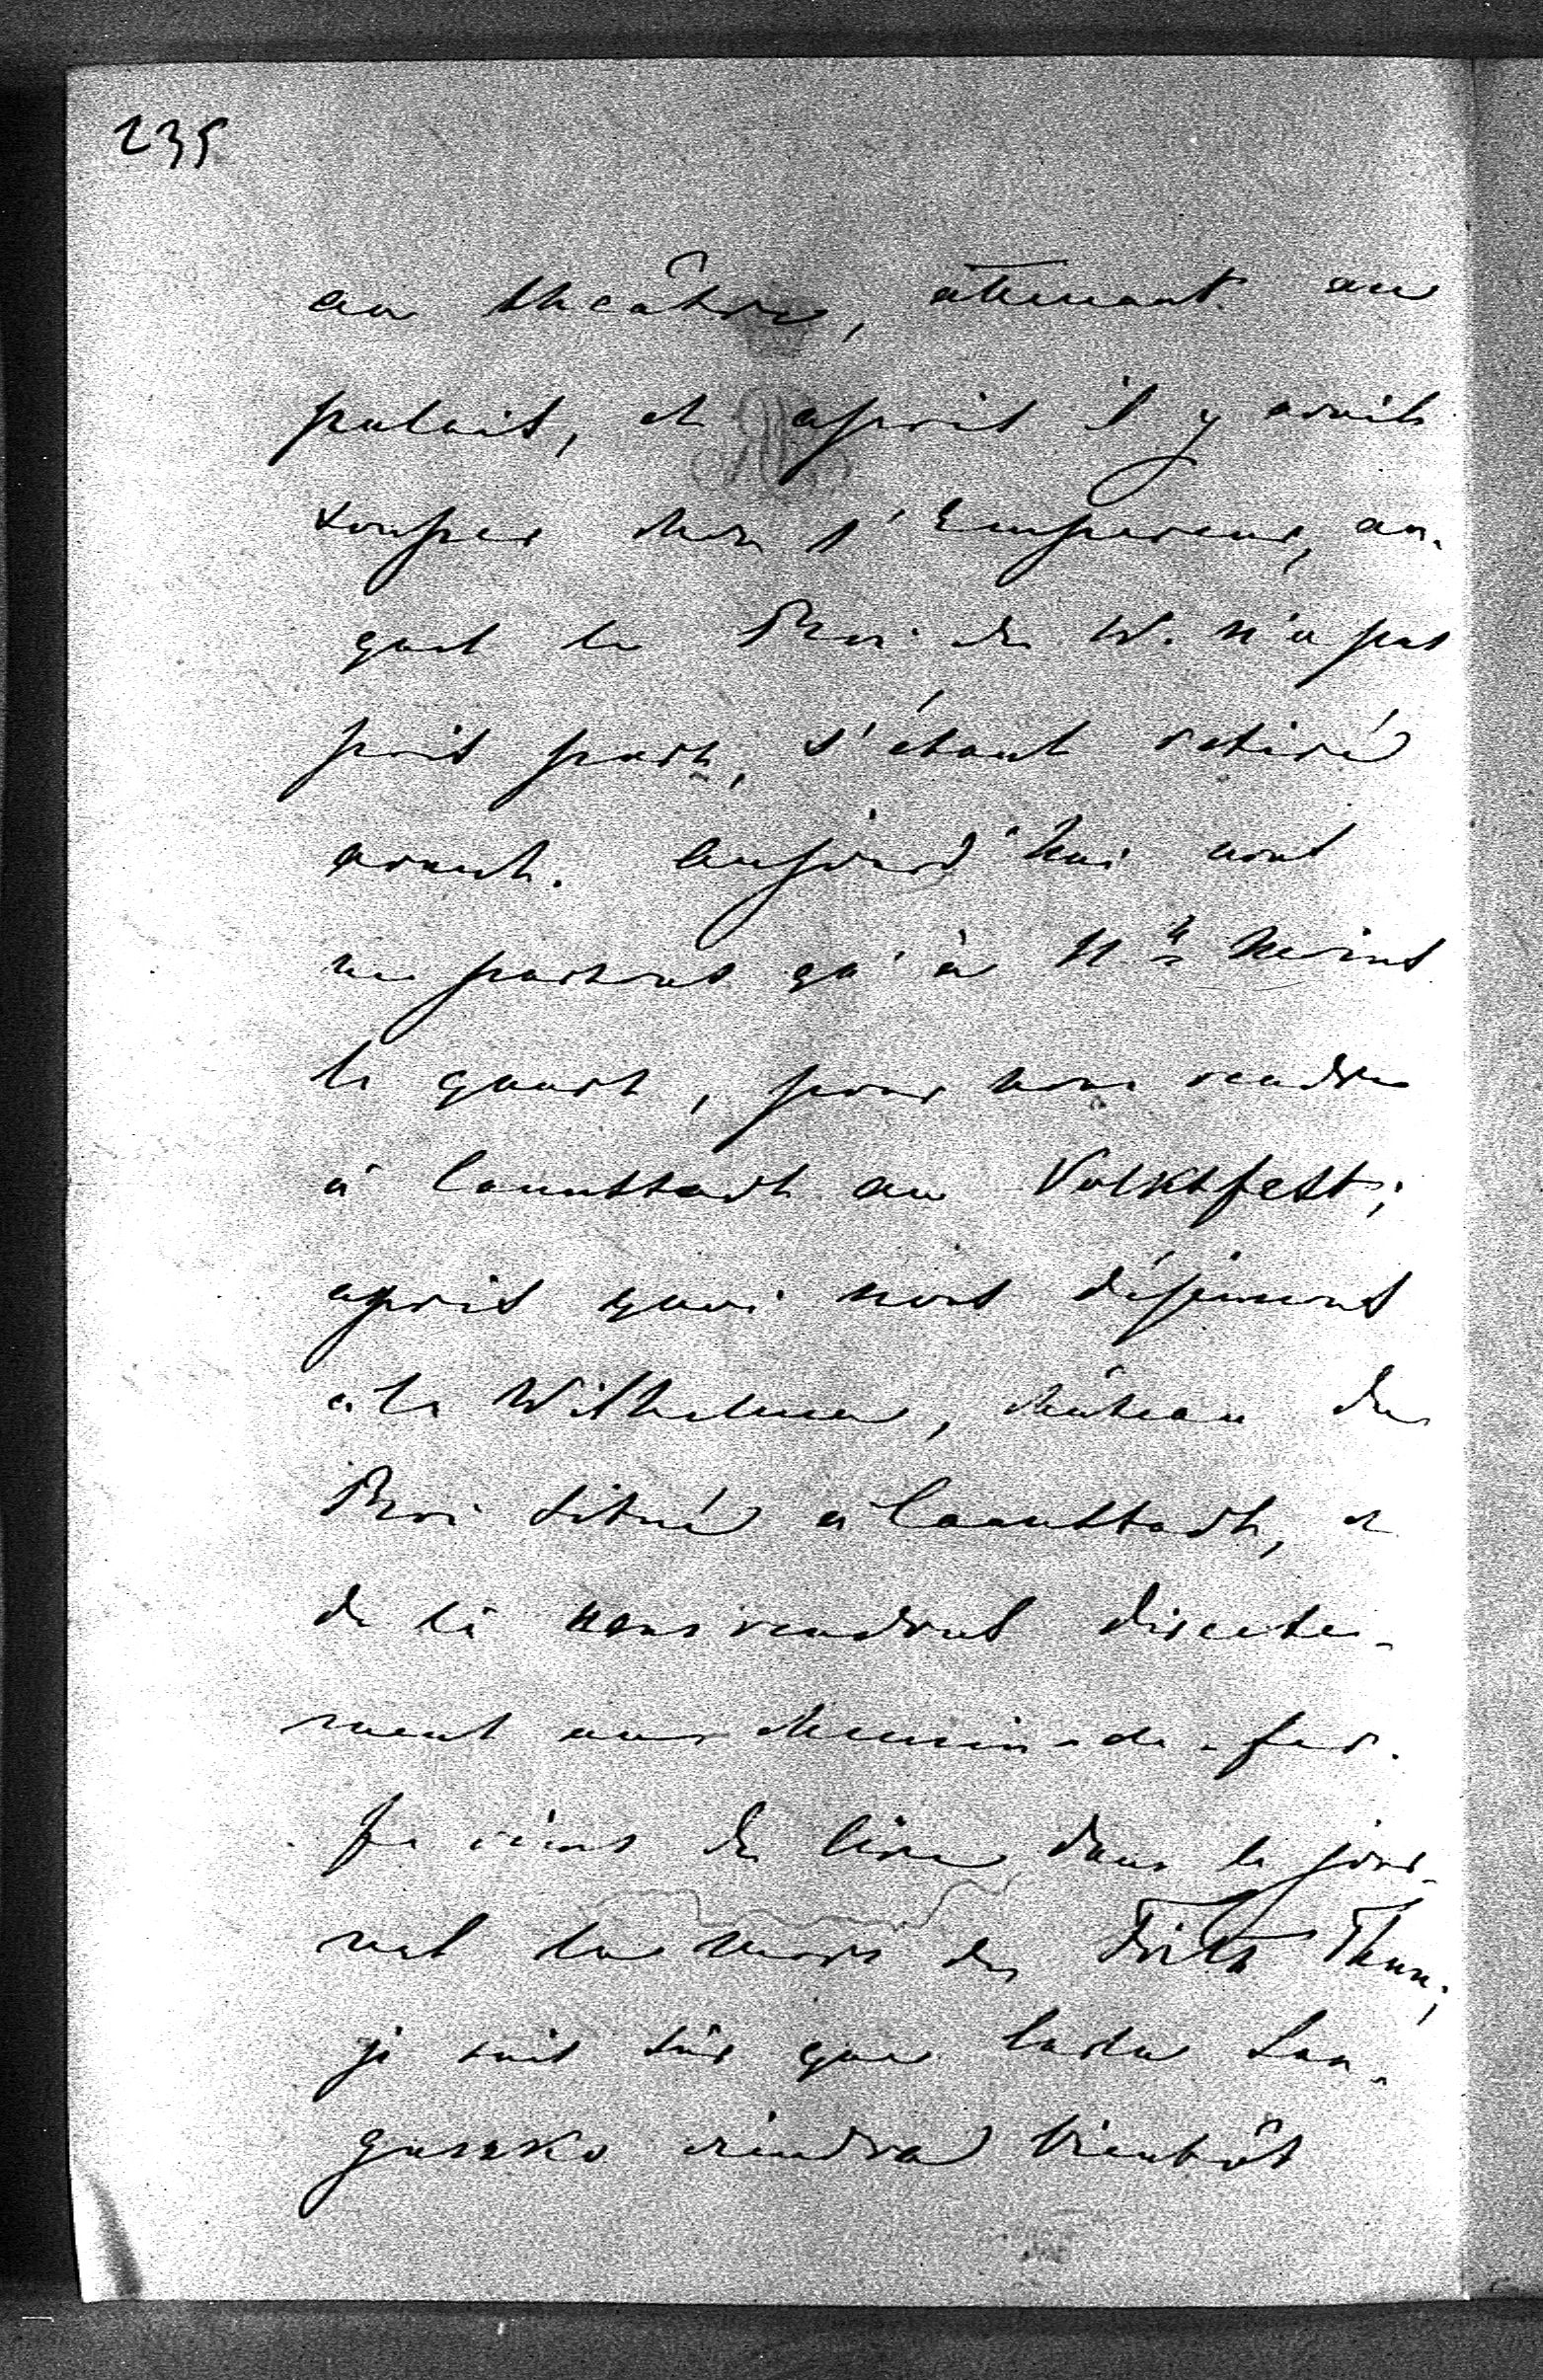 235
au théâtre, attenant au
palais, et après il y avait
souper chez l'Empereur, au-
quel le Roi de W. n'a pas
pris part, s'étant retiré
avant. Aujourd'hui nous
ne partons qu'à 11 h moins
le quart, pour nous rendre
à Cannstadt au Volksfest;
après quoi nous déjeunons
à la Wilhelma, château du
Roi situé à Cannstadt, et
de là nous rendons directe-
ment au chemin-de-fer.
Je viens de lire dans le jour-
nal la mort de Fritz Thun;
je suis sûr que San-
guszko viendra bientôt